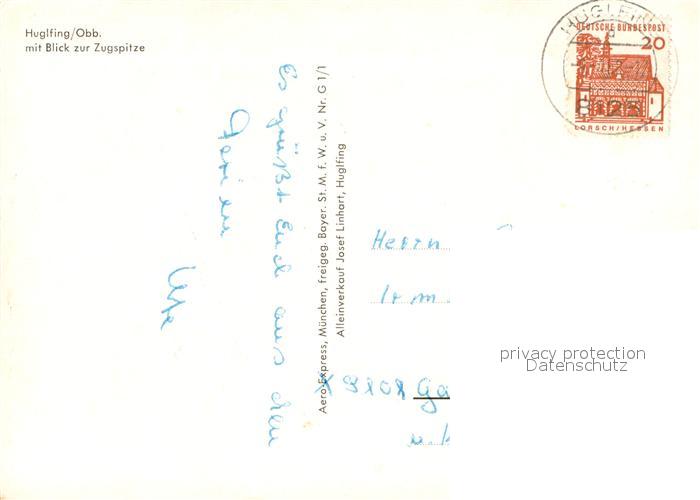 Huglfing/Obb.
mit Blick zur Zugspitze
HUGLFING
DEUTSCHE BUNDESPOST
20
LORSCH/HESSEN
Es grüßt Euch aus den
Ferien
Ute
Aero-Express, München, freigeg. Bayer. St. M. f. W. u. V. Nr. G 1/1
Alleinverkauf Josef Linhart, Huglfing
Herrn
Irm
Ga
privacy protection
Datenschutz